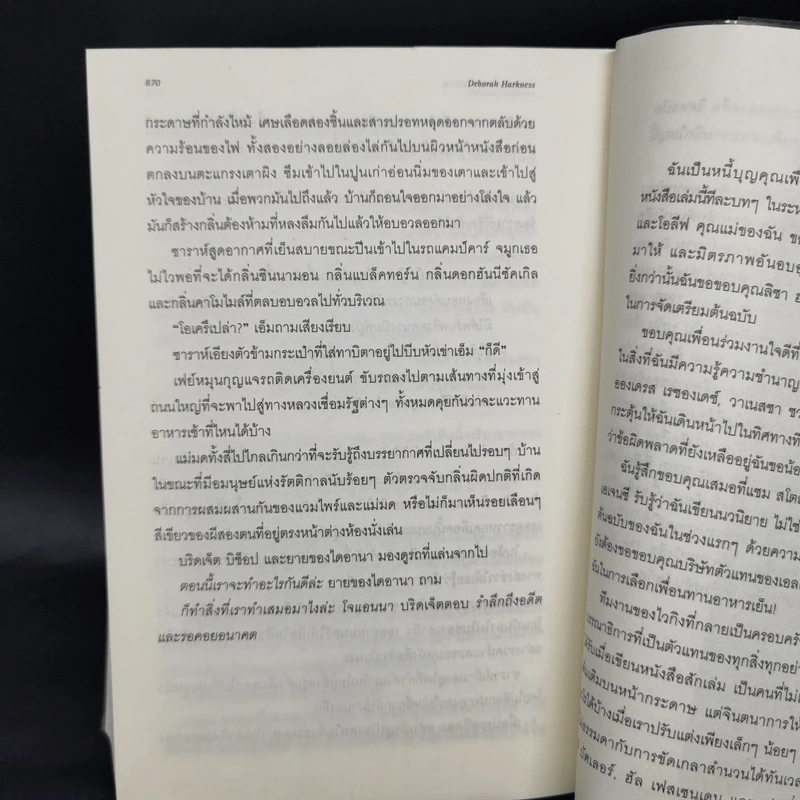 870
Deborah Harkness
กระดาษที่กำลังไหม้ เศษเลือดสองชิ้นและสารปรอทหลุดออกจากตลับด้วย
ความร้อนของไฟ ทั้งสองอย่างลอยล่องไล่กันไปบนผิวหน้าหนังสือก่อน
ตกลงบนตะแกรงเตาผิง ซึมเข้าไปในปูนเก่าอ่อนนิ่มของเตาและเข้าไปสู่
หัวใจของบ้าน เมื่อพวกมันไปถึงแล้ว บ้านก็ถอนใจออกมาอย่างโล่งใจ แล้ว
มันก็สร้างกลิ่นต้องห้ามที่หลงลืมกันไปแล้วให้อบอวลออกมา
ซาราห์สูดอากาศที่เย็นสบายขณะปีนเข้าไปในรถแคมป์คาร์ จมูกเธอ
ไม่ไวพอที่จะได้กลิ่นซินนามอน กลิ่นแบล็คทอร์น กลิ่นดอกฮันนีซัคเกิล
และกลิ่นคาโมไมล์ที่ตลบอบอวลไปทั่วบริเวณ
“โอเครึเปล่า?” เอ็มถามเสียงเรียบ
ซาราห์เอียงตัวข้ามกระเป๋าที่ใส่ทาบิตาอยู่ไปบีบหัวเข่าเอ็ม “ก็ดี”
เฟย์หมุนกุญแจรถติดเครื่องยนต์ ขับรถลงไปตามเส้นทางที่มุ่งเข้าสู่
ถนนใหญ่ที่จะพาไปสู่ทางหลวงเชื่อมรัฐต่างๆ ทั้งหมดคุยกันว่าจะแวะทาน
อาหารเช้าที่ไหนได้บ้าง
แม่มดทั้งสี่ไปไกลเกินกว่าที่จะรับรู้ถึงบรรยากาศที่เปลี่ยนไปรอบๆ บ้าน
ในขณะที่มีอมนุษย์แห่งรัตติกาลนับร้อยๆ ตัวตรวจจับกลิ่นผิดปกติที่เกิด
จากการผสมผสานกันของแวมไพร์และแม่มด หรือไม่ก็มาเห็นรอยเลือนๆ
สีเขียวของผีสองตนที่อยู่ตรงหน้าต่างห้องนั่งเล่น
บริดเจ็ต บิช็อป และยายของไดอานา มองดูรถที่แล่นจากไป
ตอนนี้เราจะทำอะไรกันดีล่ะ ยายของไดอานา ถาม
ก็ทำสิ่งที่เราทำเสมอมาไงล่ะ โจแอนนา บริดเจ็ตตอบ รำลึกถึงอดีต
และรอคอยอนาคต
ฉันเป็นหนี้บุญคุณเพื่
หนังสือเล่มนี้ทีละบทๆ ในระห
และโอลีฟ คุณแม่ของฉัน ขอ
มาให้ และมิตรภาพอันอบอ
ยิ่งกว่านั้นฉันขอขอบคุณลิซา ฮ
ในการจัดเตรียมต้นฉบับ
ขอบคุณเพื่อนร่วมงานใจดีที่
ในสิ่งที่ฉันมีความรู้ความชำนาญ
อองเดรส เรซองเดซ์, วาเนสซา ชว
กระตุ้นให้ฉันเดินหน้าไปในทิศทางที่
ว่าข้อผิดพลาดที่ยังเหลืออยู่ฉันขอน้อ
ฉันรู้สึกขอบคุณเสมอที่แซม สโตโ
เอเจนซี รับรู้ว่าฉันเขียนนวนิยาย ไม่ใช่
ต้นฉบับของฉันในช่วงแรกๆ ด้วยความ
ยังต้องขอขอบคุณบริษัทตัวแทนของเอล
ฉันในการเลือกเพื่อนทานอาหารเย็น!
ทีมงานของไวกิงที่กลายเป็นครอบครัว
บรรณาธิการที่เป็นตัวแทนของทุกสิ่งทุกอย่า
เมื่อเขียนหนังสือสักเล่ม เป็นคนที่ไม่
เติมบนหน้ากระดาษ แต่จินตนาการให้
ได้บ้างเมื่อเราปรับแต่งเพียงเล็กๆ น้อยๆ
ธรรมดากับการขัดเกลาสำนวนได้ทันเวล
บัตเลอร์, ฮัล เฟสเซนเดน